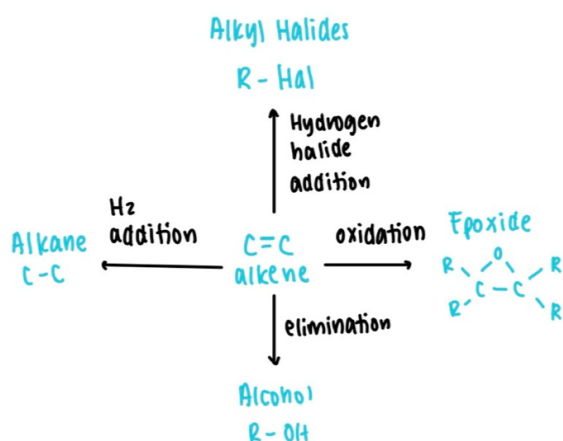 Alkyl Halides
R - Hal
Hydrogen
halide
addition
H2
addition
Alkane
C-C
C=C
alkene
oxidation
Epoxide
O
R R
C - C
R R
elimination
Alcohol
R-OH